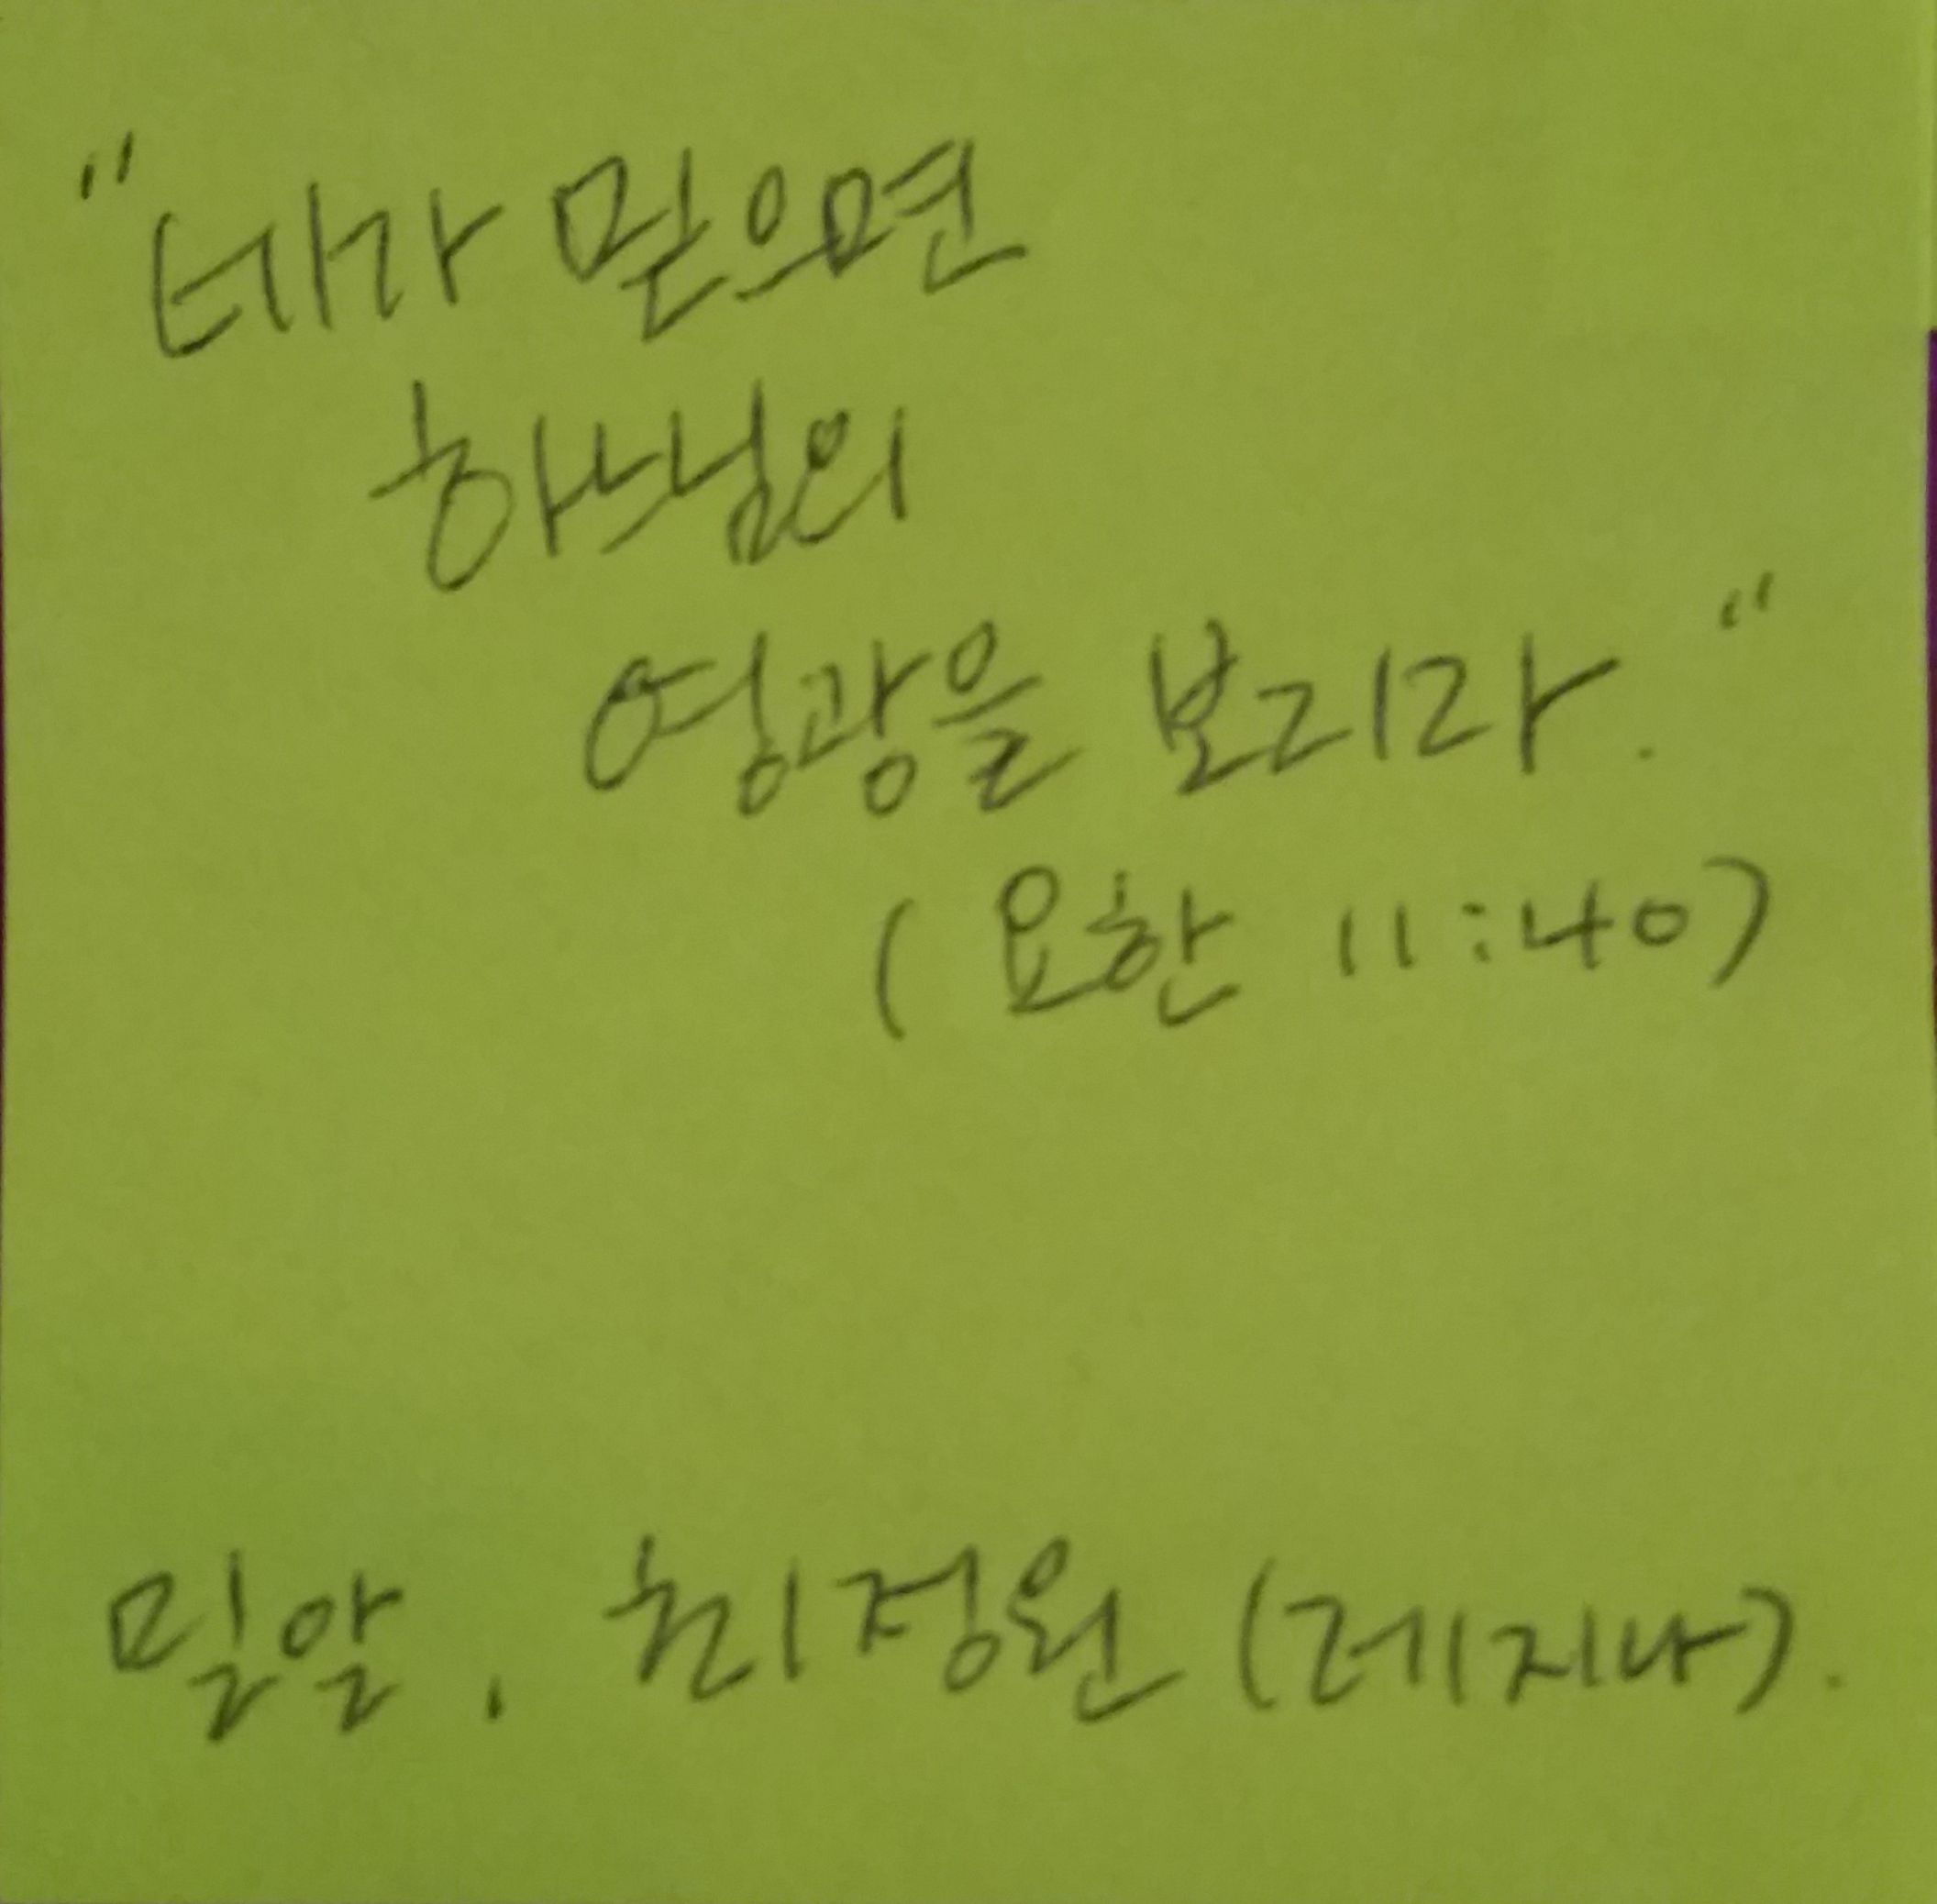 "네가 믿으면
하느님의
영광을 보리라."
(요한 11:40)
밀알, 최정원 (레지나).